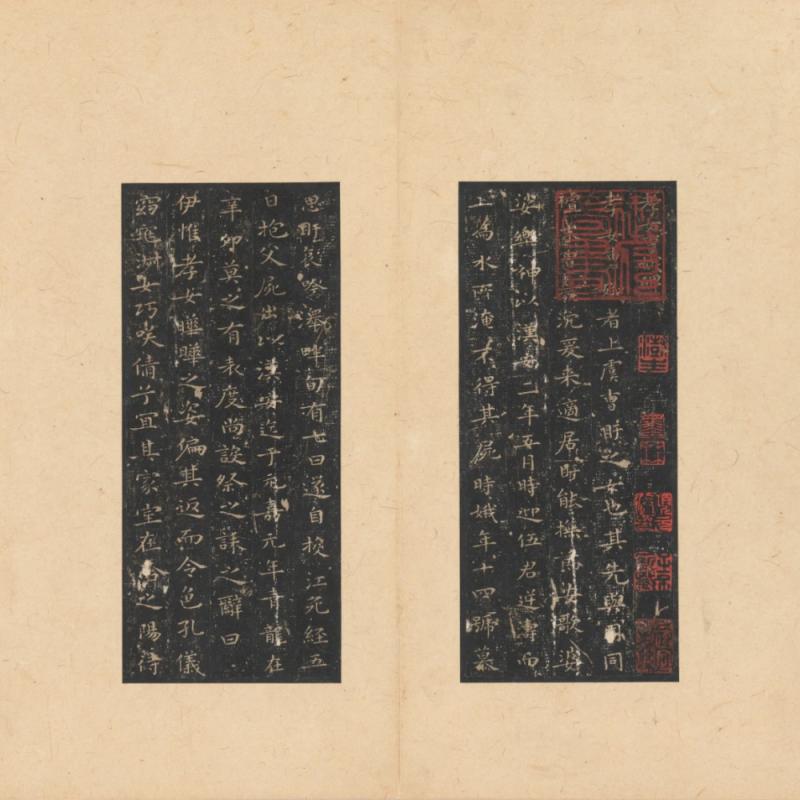 孝女曹娥碑
孝女曹娥者上虞曹盱之女也其先與周同
沉爰来適居盱能撫節安歌婆
娑樂神以漢安二年五月時迎伍君逆濤而
上為水所淹不得其屍時娥年十四號慕
思盱哀吟澤畔旬有七日遂自投江死經五
日抱父屍出以漢安迄于元嘉元年青龍在
辛卯莫之有表度尚設祭之誄之辭曰
伊惟孝女曄曄之姿偏其返而令色孔儀
窈窕淑女巧笑倩兮宜其家室在洽之陽待